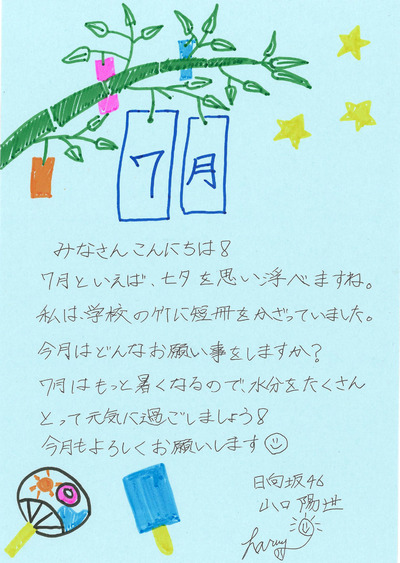 7月
みなさんこんにちは!
7月といえば、七夕を思い浮べますね。
私は学校の竹に短冊をかざっていました。
今月はどんなお願い事をしますか?
7月はもっと暑くなるので、水分をたくさん
とって元気に過ごしましょう!
今月もよろしくお願いします
日向坂46
山口 陽世
haruy